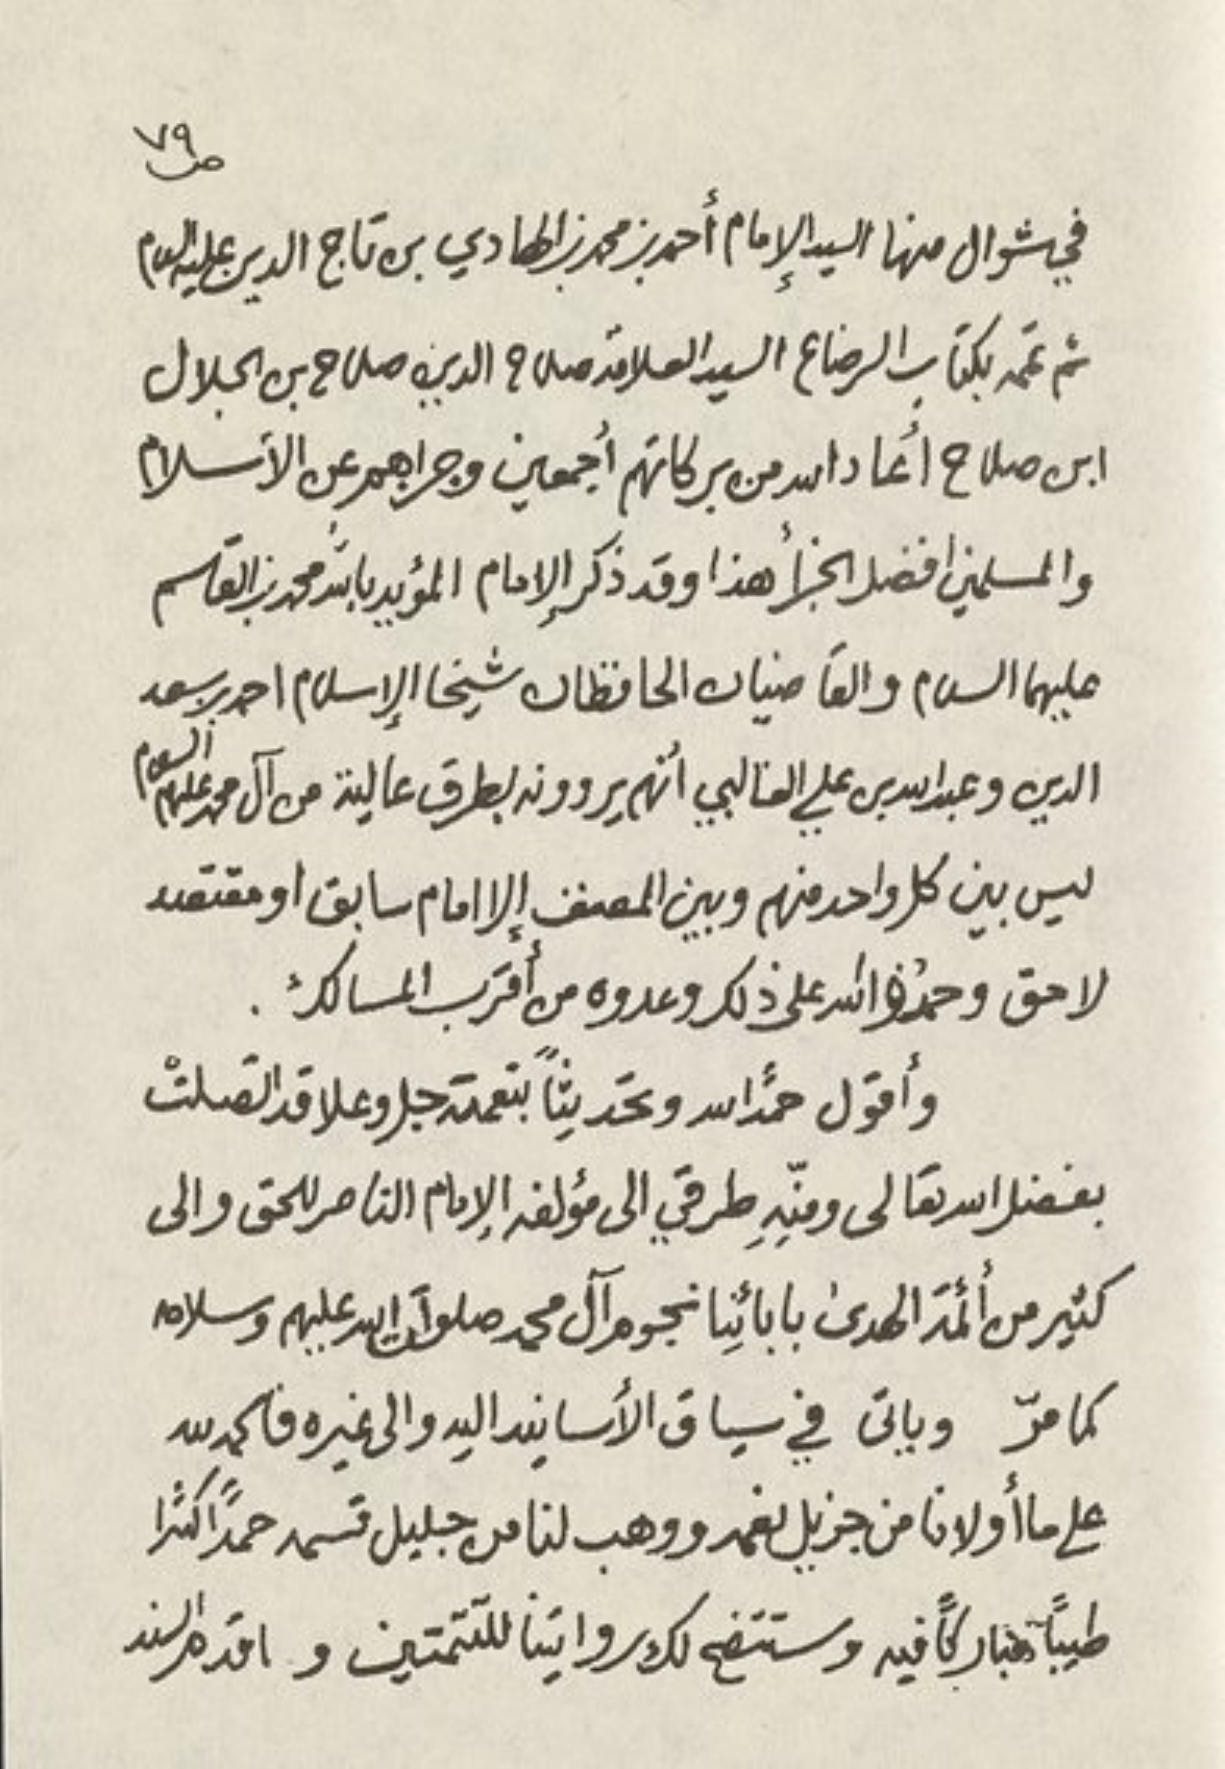 ص ٧٩
في شوال منها السيد الإمام أحمد بن محمد بن الهادي بن تاج الدين عليه السلام
ثم تممه بكتاب الرضاع السيد العلامة صلاح الدين صلاح بن الجلال
ابن صلاح أعاد الله من بركاتهم أجمعين وجزاهم عن الأسلام
والمسلمين افضل الجزأ هذا وقد ذكر الإمام المؤيد بالله محمد بن القاسم
عليهما السلام والقاضيان الحافظان شيخا الإسلام احمد بن سعد
الدين وعبدالله بن علي الغالبي أنهم يروونه بطرق عالية من آل محمد عليهم السلام
ليس بين كل واحد منهم وبين المصنف إلا امام سابق أو مقتصد
لاحق وحمدوا الله على ذلك وعدوه من أقرب المسالك .
وأقول حمدًا لله وتحديثاً بنعمته جل وعلا قد اتصلتْ
بفضل الله تعالى ومنّهِ طرقي الى مؤلفه الإمام الناصر للحق والى
كثير من أئمة الهدى بابائنا نجوم آل محمد صلوات الله عليهم وسلامه
كما مرّ وياتى في سياق الأسانيد اليه والى غيره فالحمد لله
على ما أولانا من جزيل نعمه ووهب لنا من جليل قسمه حمدًا كثيرًا
طيبًا مباركًا فيه وستتضح لك روايتنا للتتمتين و السند